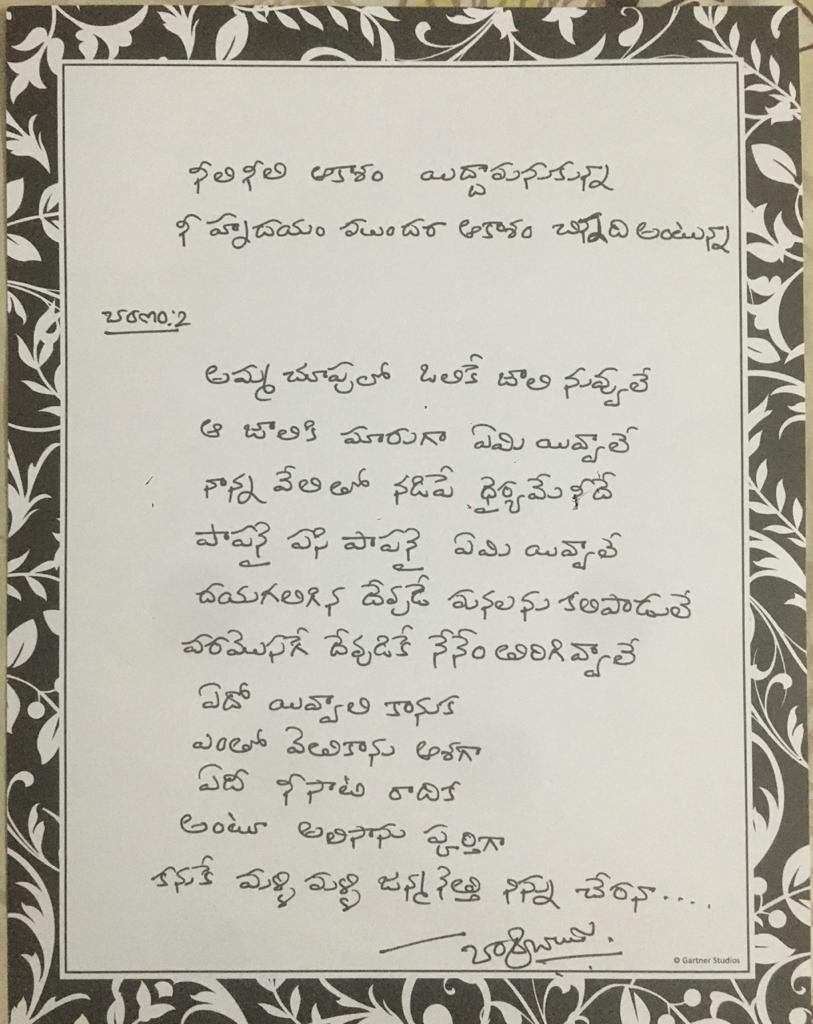 నీలి నీలి ఆకాశం యిద్దామనుకున్నా
నీ హృదయం ముందర ఆకాశం చిన్నది అంటున్నా
చరణం:2
అమ్మ చూపులో ఒలికే జాలి నువ్వులే
ఆ జాలికి మారుగా ఏమి యివ్వాలే
నాన్న వేలి తో నడిపే ధైర్యమే నీదే
పాపనై పసి పాపనై ఏమి యివ్వాలే
దయగలిగిన దేవుడే మనలను కలిపాడులే
వరమొసగే దేవుడికే నేనేం తిరిగివ్వాలే
ఏదో యివ్వాలి కానుక
ఎంతో వెతికాను ఆశగా
ఏదీ నీసాటి రాదిక
అంటూ అలిసాను పూర్తిగా
కనుకే మళ్ళి మళ్ళి జన్మ నెత్తి నిన్ను చేరనా....
© Gartner Studios